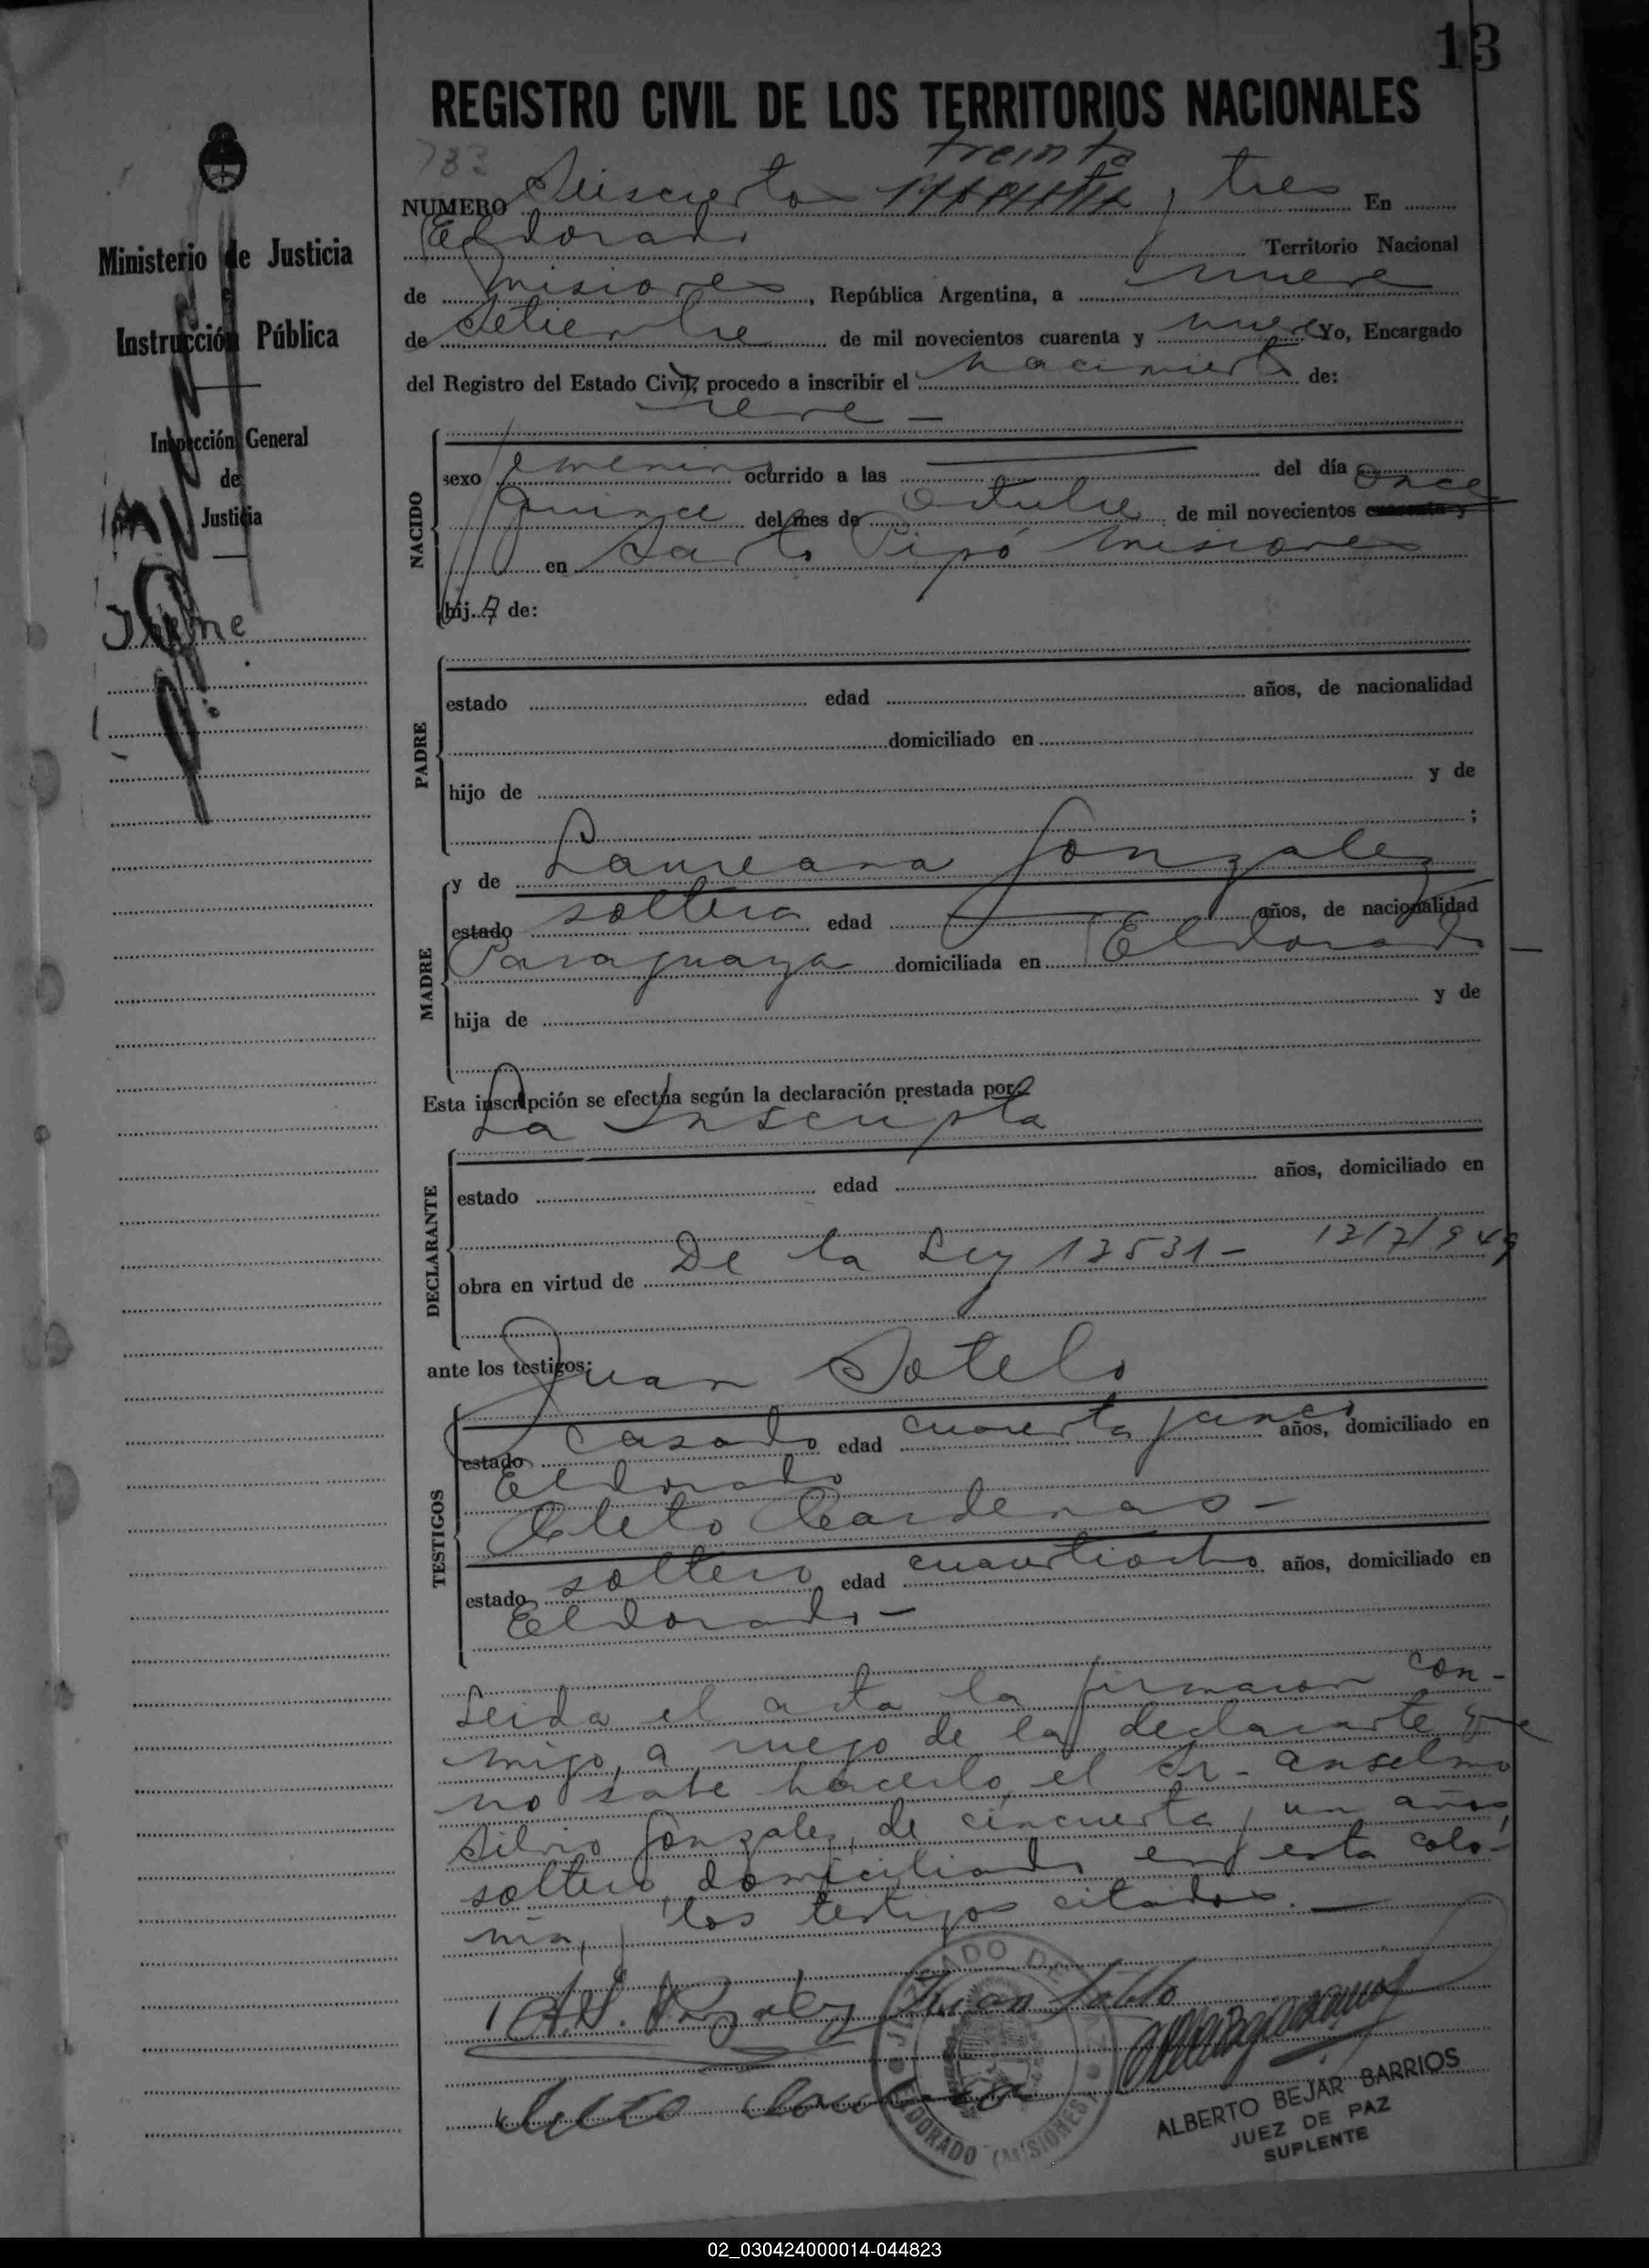 13
REGISTRO CIVIL DE LOS TERRITORIOS NACIONALES
733
treinta
NUMERO Seiscientos y tres En
Eldorado Territorio Nacional
de Misiones, República Argentina, a nueve
de Setiembre de mil novecientos cuarenta y nueve Yo, Encargado
del Registro del Estado Civil, procedo a inscribir el nacimiento de:
Irene -
NACIDO
sexo femenino ocurrido a las del día
quince del mes de Octubre de mil novecientos cuarenta y once
en Santo Pipó Misiones
hij..a de:
PADRE
estado edad años, de nacionalidad
domiciliado en
hijo de y de
;
MADRE
y de Laureana Gonzalez
estado soltera edad años, de nacionalidad
Paraguaya domiciliada en Eldorado -
hija de y de
Esta inscripción se efectúa según la declaración prestada por:
La Inscripta
DECLARANTE
estado edad años, domiciliado en
obra en virtud de De la Ley 13531- 13/7/949
ante los testigos:
Juan Sotelo
TESTIGOS
estado casado edad cuarenta años, domiciliado en
Eldorado
Cleto Cardenas -
estado soltero edad cuarentiocho años, domiciliado en
Eldorado -
Leida el acta la firmaron con-
migo, a ruego de la declarante que
no sabe hacerlo, el Sr. Anselmo
Silvio Gonzalez, de cincuenta y un años,
soltero, domiciliado en esta colo-
nia, y los testigos citados. -
A.S. Gonzalez Juan Sotelo
JUZGADO DE PAZ
ELDORADO (MISIONES)
ALBERTO BEJAR BARRIOS
JUEZ DE PAZ
SUPLENTE
Ministerio de Justicia
e
Instrucción Pública
Inspección General
de
Justicia
Irene
02_030424000014-044823